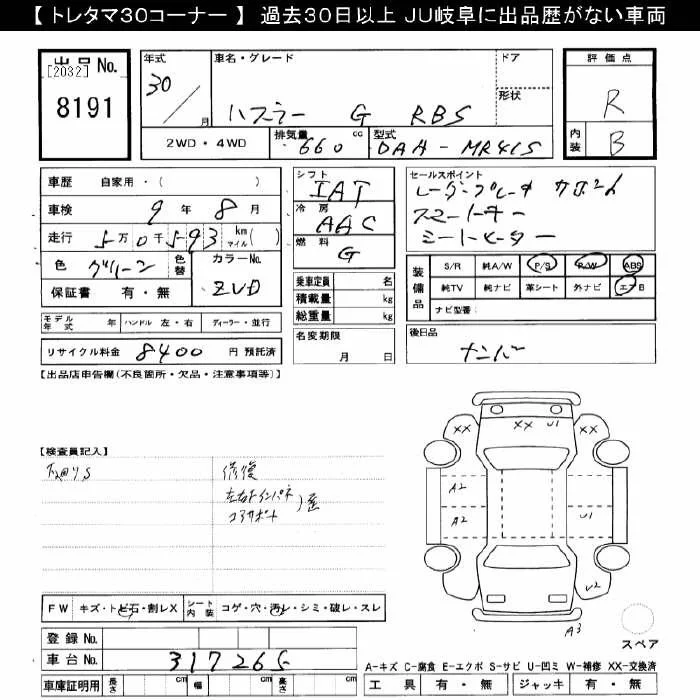 【 トレタマ30コーナー 】 過去30日以上 JU岐阜に出品歴がない車両
出品 No.
[2032]
8191
年式 30 / 月
車名・グレード ハスラー G RBS
ドア
形状
2WD・4WD
排気量 660 cc
型式 DAA-MR41S
評価点 R
内装 B
車歴 自家用・( )
車検 9 年 8 月
走行 5 万 0 千 593 km マイル ( )
色 グリーン 色替 カラーNo. ZVD
保証書 有・無
モデル年式 年 ハンドル 左・右 ディーラー・並行
リサイクル料金 8400 円 預託済
シフト IAT
冷房 AAC
燃料 G
乗車定員 名
積載量 kg
総重量 kg
名変期限 月 日
セールスポイント
レーダーブレーキ サポート
スマートキー
シートヒーター
装備品 S/R 純A/W P/S P/W ABS
純TV 純ナビ 革シート 外ナビ エアB
ナビ型番:
後日品 ナンバー
【出品店申告欄(不良箇所・欠品・注意事項等)】
【検査員記入】
下回りS
修復
左右トインパネ
コアサポート
XX XX U1 XX
A2
A2 U1
U2
A3
スペア
FW キズ・トビ石・割レX シート内装 コゲ・穴・汚レ・シミ・破レ・スレ
登録 No.
車台 No. 317265
車庫証明用 長さ cm 幅 cm 高さ cm
A-キズ C-腐食 E-エクボ S-サビ U-凹ミ W-補修 XX-交換済
工具 有・無 ジャッキ 有・無